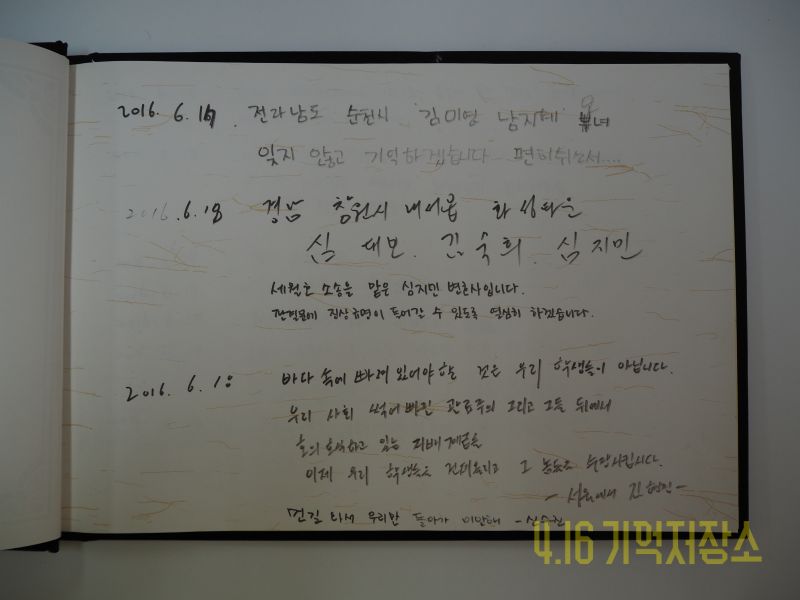 2016. 6. 17. 전라남도 순천시 김미영 남지혜 모녀
잊지 않고 기억하겠습니다. 편히쉬소서....
2016. 6. 18 경남 창원시 내서읍
심 대보. 김 숙희. 심 지민
세월호 소송을 맡은 심지민 변호사입니다.
판결문에 진상규명이 들어갈 수 있도록 열심히 하겠습니다.
2016. 6. 18 바다 속에 빠져 있어야 할 것은 우리 학생들이 아닙니다.
우리 사회 썩어빠진 관료주의 그리고 그들 뒤에서
호의호식하고 있는 지배계급을
이제 우리 학생들을 건져올리고 그 놈들을 수장시킵시다.
- 서울에서 진현민 -
먼길 와서 우리만 돌아가 미안해
4.16 기억저장소